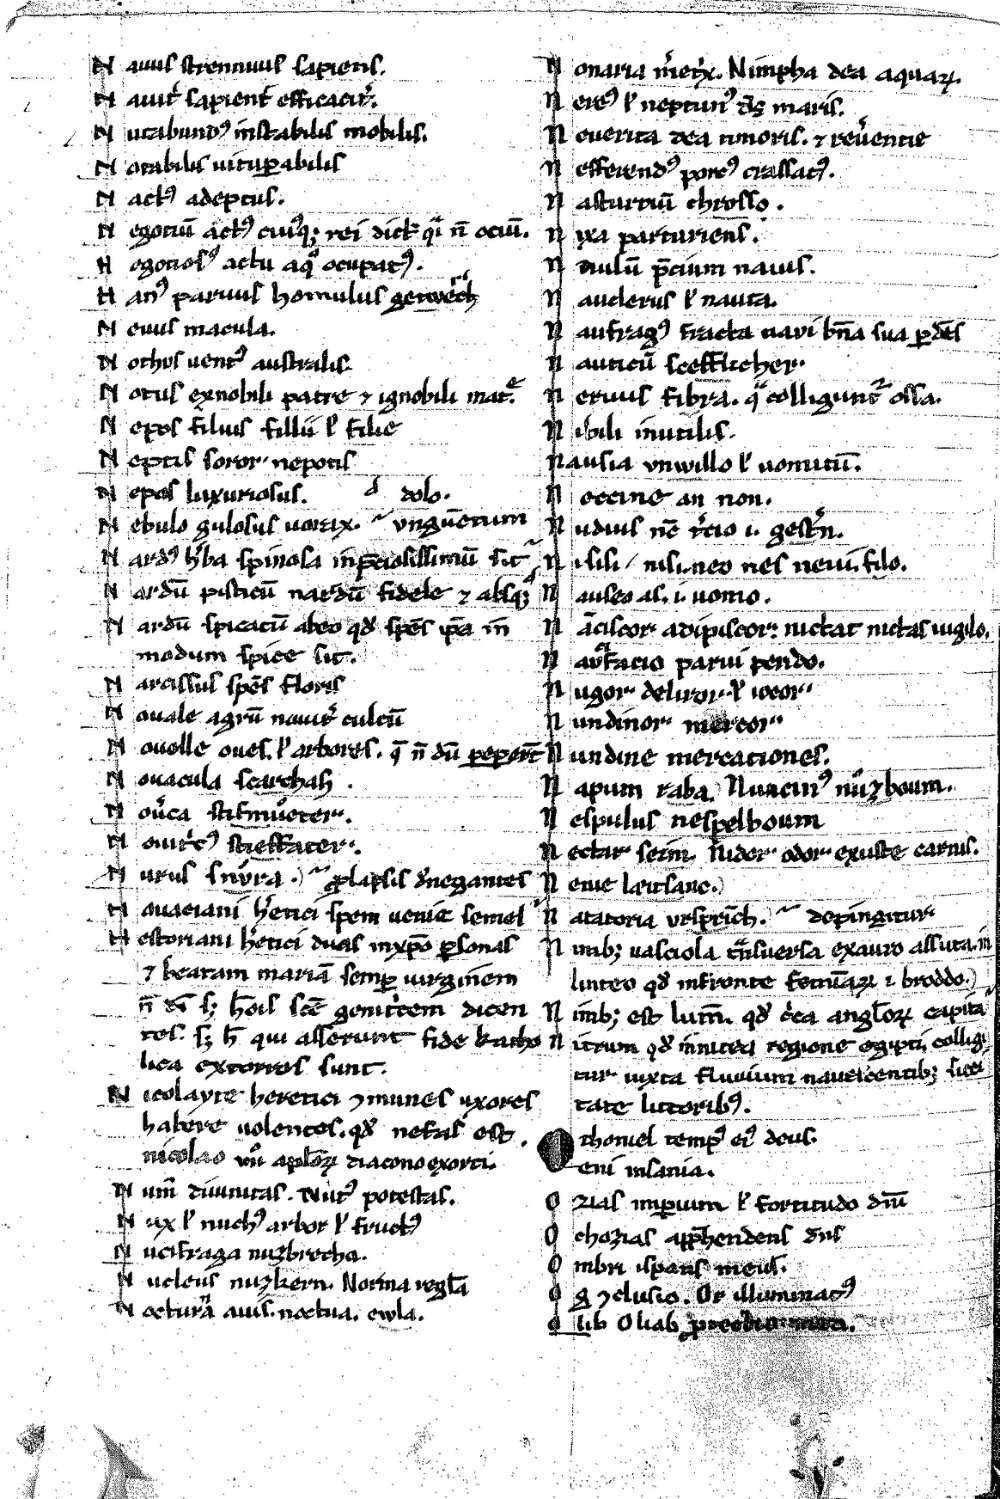 N auus strennuus sapiens.
N auit͛ sapient͛ efficacit͛.
N utabundꝰ instabilis mobilis.
N otabilis uituꝑabilis
N actꝰ adeptus.
N egotiū actꝰ rei dict͛ qͥ n̄ ociū.
N egotiosꝰ actu aqͦ ocupatꝰ.
N anꝰ paruus homulus
N euus macula.
N othus uentꝰ australis.
N otus exnobili patre ⁊ ignobili mat͛.
N epos filius fillii ł filie
N eptis soror nepotis
N epos luxuriosus. dolo.
N ebulo gulosus uorax. vnguētum
N ardꝰ h̓ba spinosa sit
N ardū pisticū nardū fidele ⁊ absqꝫ
N ardū spicatū abeo qd̓ spēs ip̄a in
modum spice sit.
N arcissus spēs floris
N ouale agrū nouit͛ cultū
N ouelle oues. ł arbores. q̄ n̄ dū peper̄t
N ouacula scarshah.
N ou͛ca stifmůeter.
N ouit͛cꝰ stieffater.
N urus snv̓ra. lapsis negantes
N ouaciani h̓etici spem uenie semel
N estoriani h̓etici duas inxp̄o ꝑsonas
⁊ beatam mariā semꝑ uirginem
n̄ dī sꝫ hoīs scē genit͛cem dicen
tes. sꝫ h̄ qui asserunt fide katho
lica extorres sunt.
N icolayte heretici ꝯmunes vxores
habere uolentes. qd̓ nefas est.
nicolao vnͦ apl̄oꝝ diacono exorti.
N um̄ diuinitas. Nutꝰ potestas.
N ux ł nuchꝰ arbor ł fructꝰ
N ucifraga nuzbrecha.
N ucleus nuzkern. Norma regl̄a
N octura auis. noctua. ewla.
N onaria m̓et͛x. Nimpha dea aquaꝝ.
N ereꝰ ł neptunꝰ dꝰs maris.
N euerita dea timoris. ⁊ reu̓entie
N efferendꝰ porcꝰ crassatꝰ.
N asturciū chrosso.
N ixa parturiens.
N aulū p̄cium nauis.
N auclerus ł nauta.
N aufragꝰ fracta naui bn̄a sua ꝑdēs
N auticū sceffucher
N eruus fibra. qͣ colligunt͛ ossa.
N ihili inutilis.
N ausia vnwillo ł uomitū.
N eccine an non.
N udius nc̄ t͛cio i. gest͛n.
N isili / nisi. neo nes neui. filo.
N auseo as. i. uomo.
N āciscor adipiscor: nictat nictas uigilo.
N aͧfacio parui pendo.
N ugor deliror ł iocor
N undinor mercor
N undine mercationes.
N apum raba. Nucinꝰ nůzboum.
N espulus nespelboum
N ectar seim. Nidor odor exuste carnis.
N enie
N atatoria vrsprīch. depingitur
N imbꝫ uasciola tͣnsuersa exauro assuta in
linteo qd̓ infronte feminaꝝ ⁊ broddo.
N imbꝫ est lum̄. qd̓ c͛ca angl̄oꝝ capita
N itrum qd̓ innitrea regione egipti. colligi
tur iuxta fluuium nauticentibꝫ sicci
tate littoribꝰ.
O thoniel tempꝰ eiꝰ deus.
O eni insania.
O zias imperium ł fortitudo dn̄i
O chozias apprehendens dn̄s
O mbri ispans meus.
O g ꝯclusio. Or illuminatꝰ
O lib Oliab